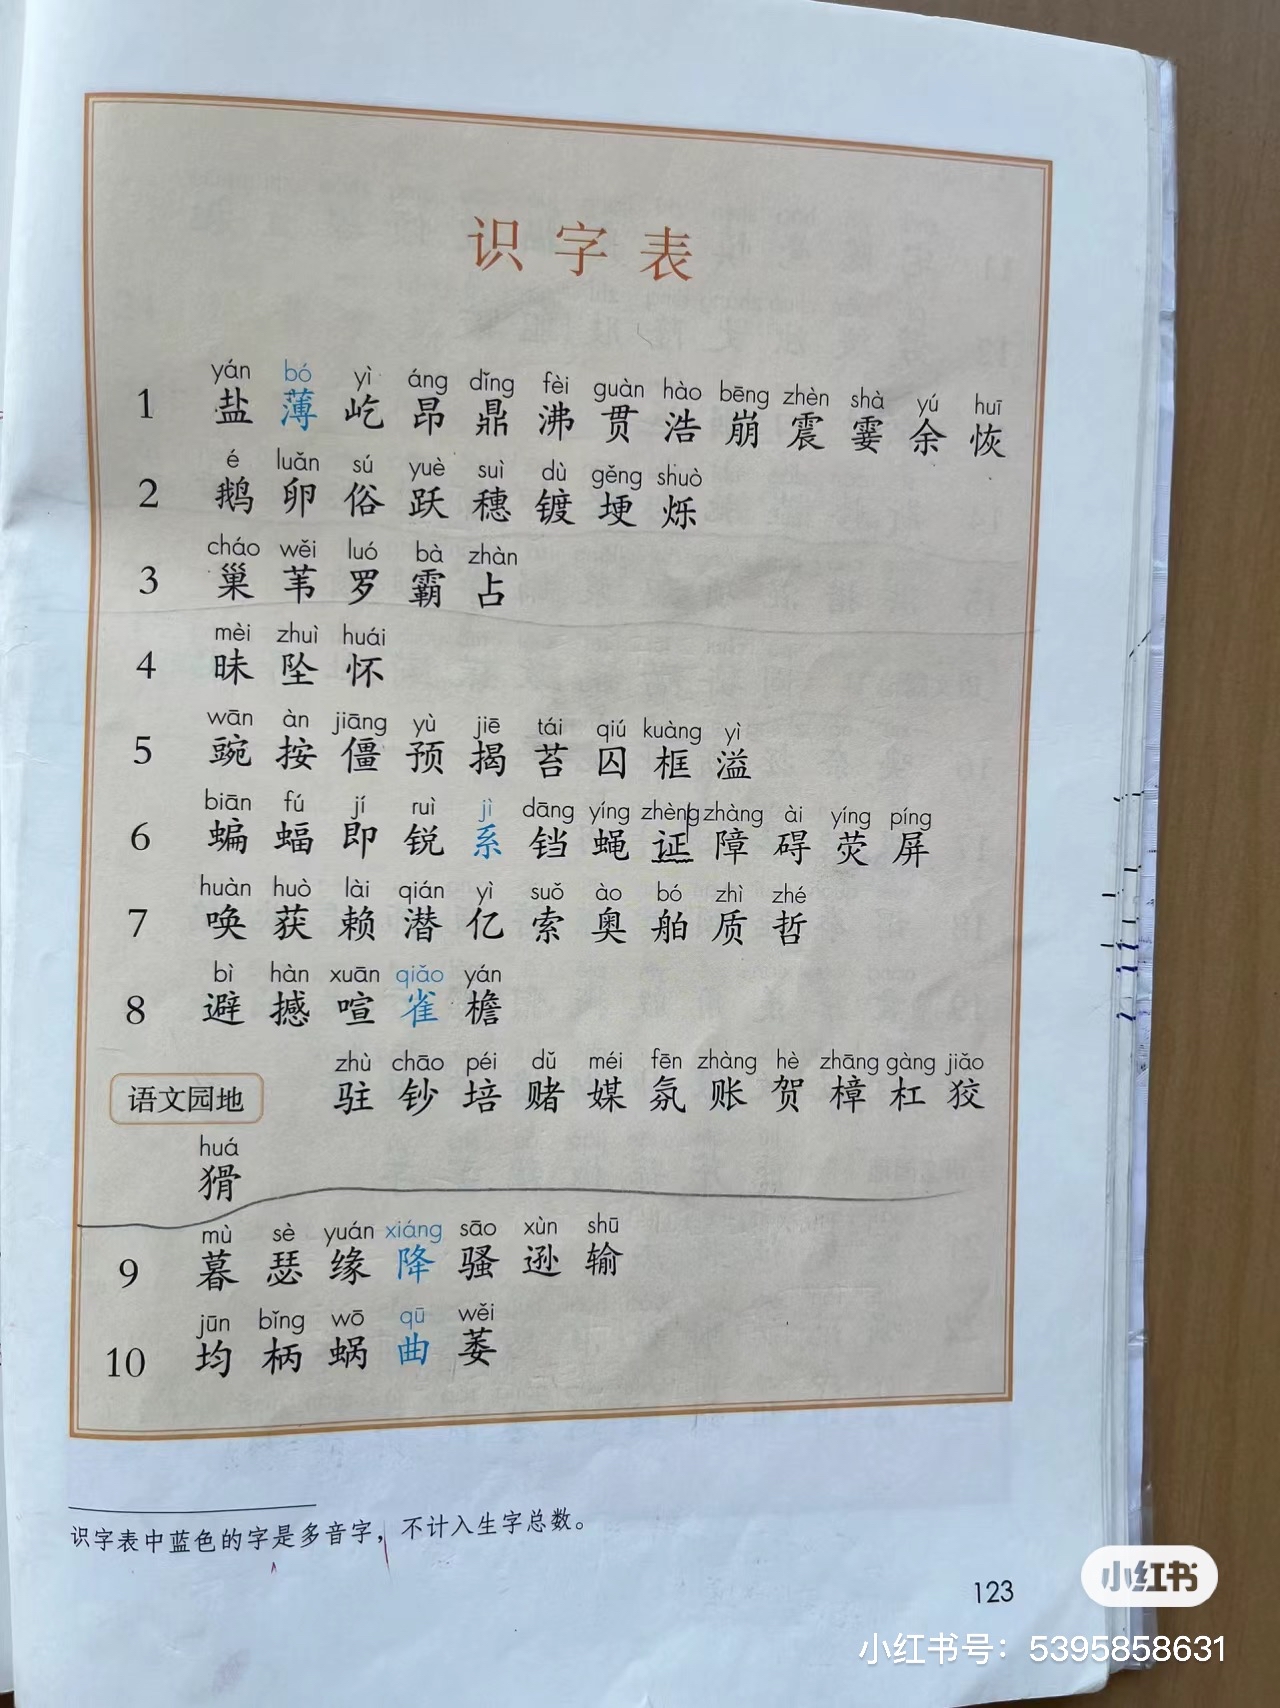 识字表
yán bó yì áng dǐng fèi guàn hào bēng zhèn shà yú huī
1 盐 薄 屹 昂 鼎 沸 贯 浩 崩 震 霎 余 恢
é luǎn sú yuè suì dù gěng shuò
2 鹅 卵 俗 跃 穗 镀 埂 烁
cháo wěi luó bà zhàn
3 巢 苇 罗 霸 占
mèi zhuì huái
4 昧 坠 怀
wān àn jiāng yù jiē tái qiú kuàng yì
5 豌 按 僵 预 揭 苔 囚 框 溢
biān fú jí ruì jì dāng yíng zhèng zhàng ài yíng píng
6 蝙 蝠 即 锐 系 铛 蝇 证 障 碍 荧 屏
huàn huò lài qián yì suǒ ào bó zhì zhé
7 唤 获 赖 潜 亿 索 奥 舶 质 哲
bì hàn xuān qiǎo yán
8 避 撼 喧 雀 檐
zhù chāo péi dǔ méi fēn zhàng hè zhāng gàng jiǎo
语文园地 驻 钞 培 赌 媒 氛 账 贺 樟 杠 狡
huá
猾
mù sè yuán xiáng sāo xùn shū
9 暮 瑟 缘 降 骚 逊 输
jūn bǐng wō qū wěi
10 均 柄 蜗 曲 萎
识字表中蓝色的字是多音字，不计入生字总数。
123
小红书
小红书号：5395858631